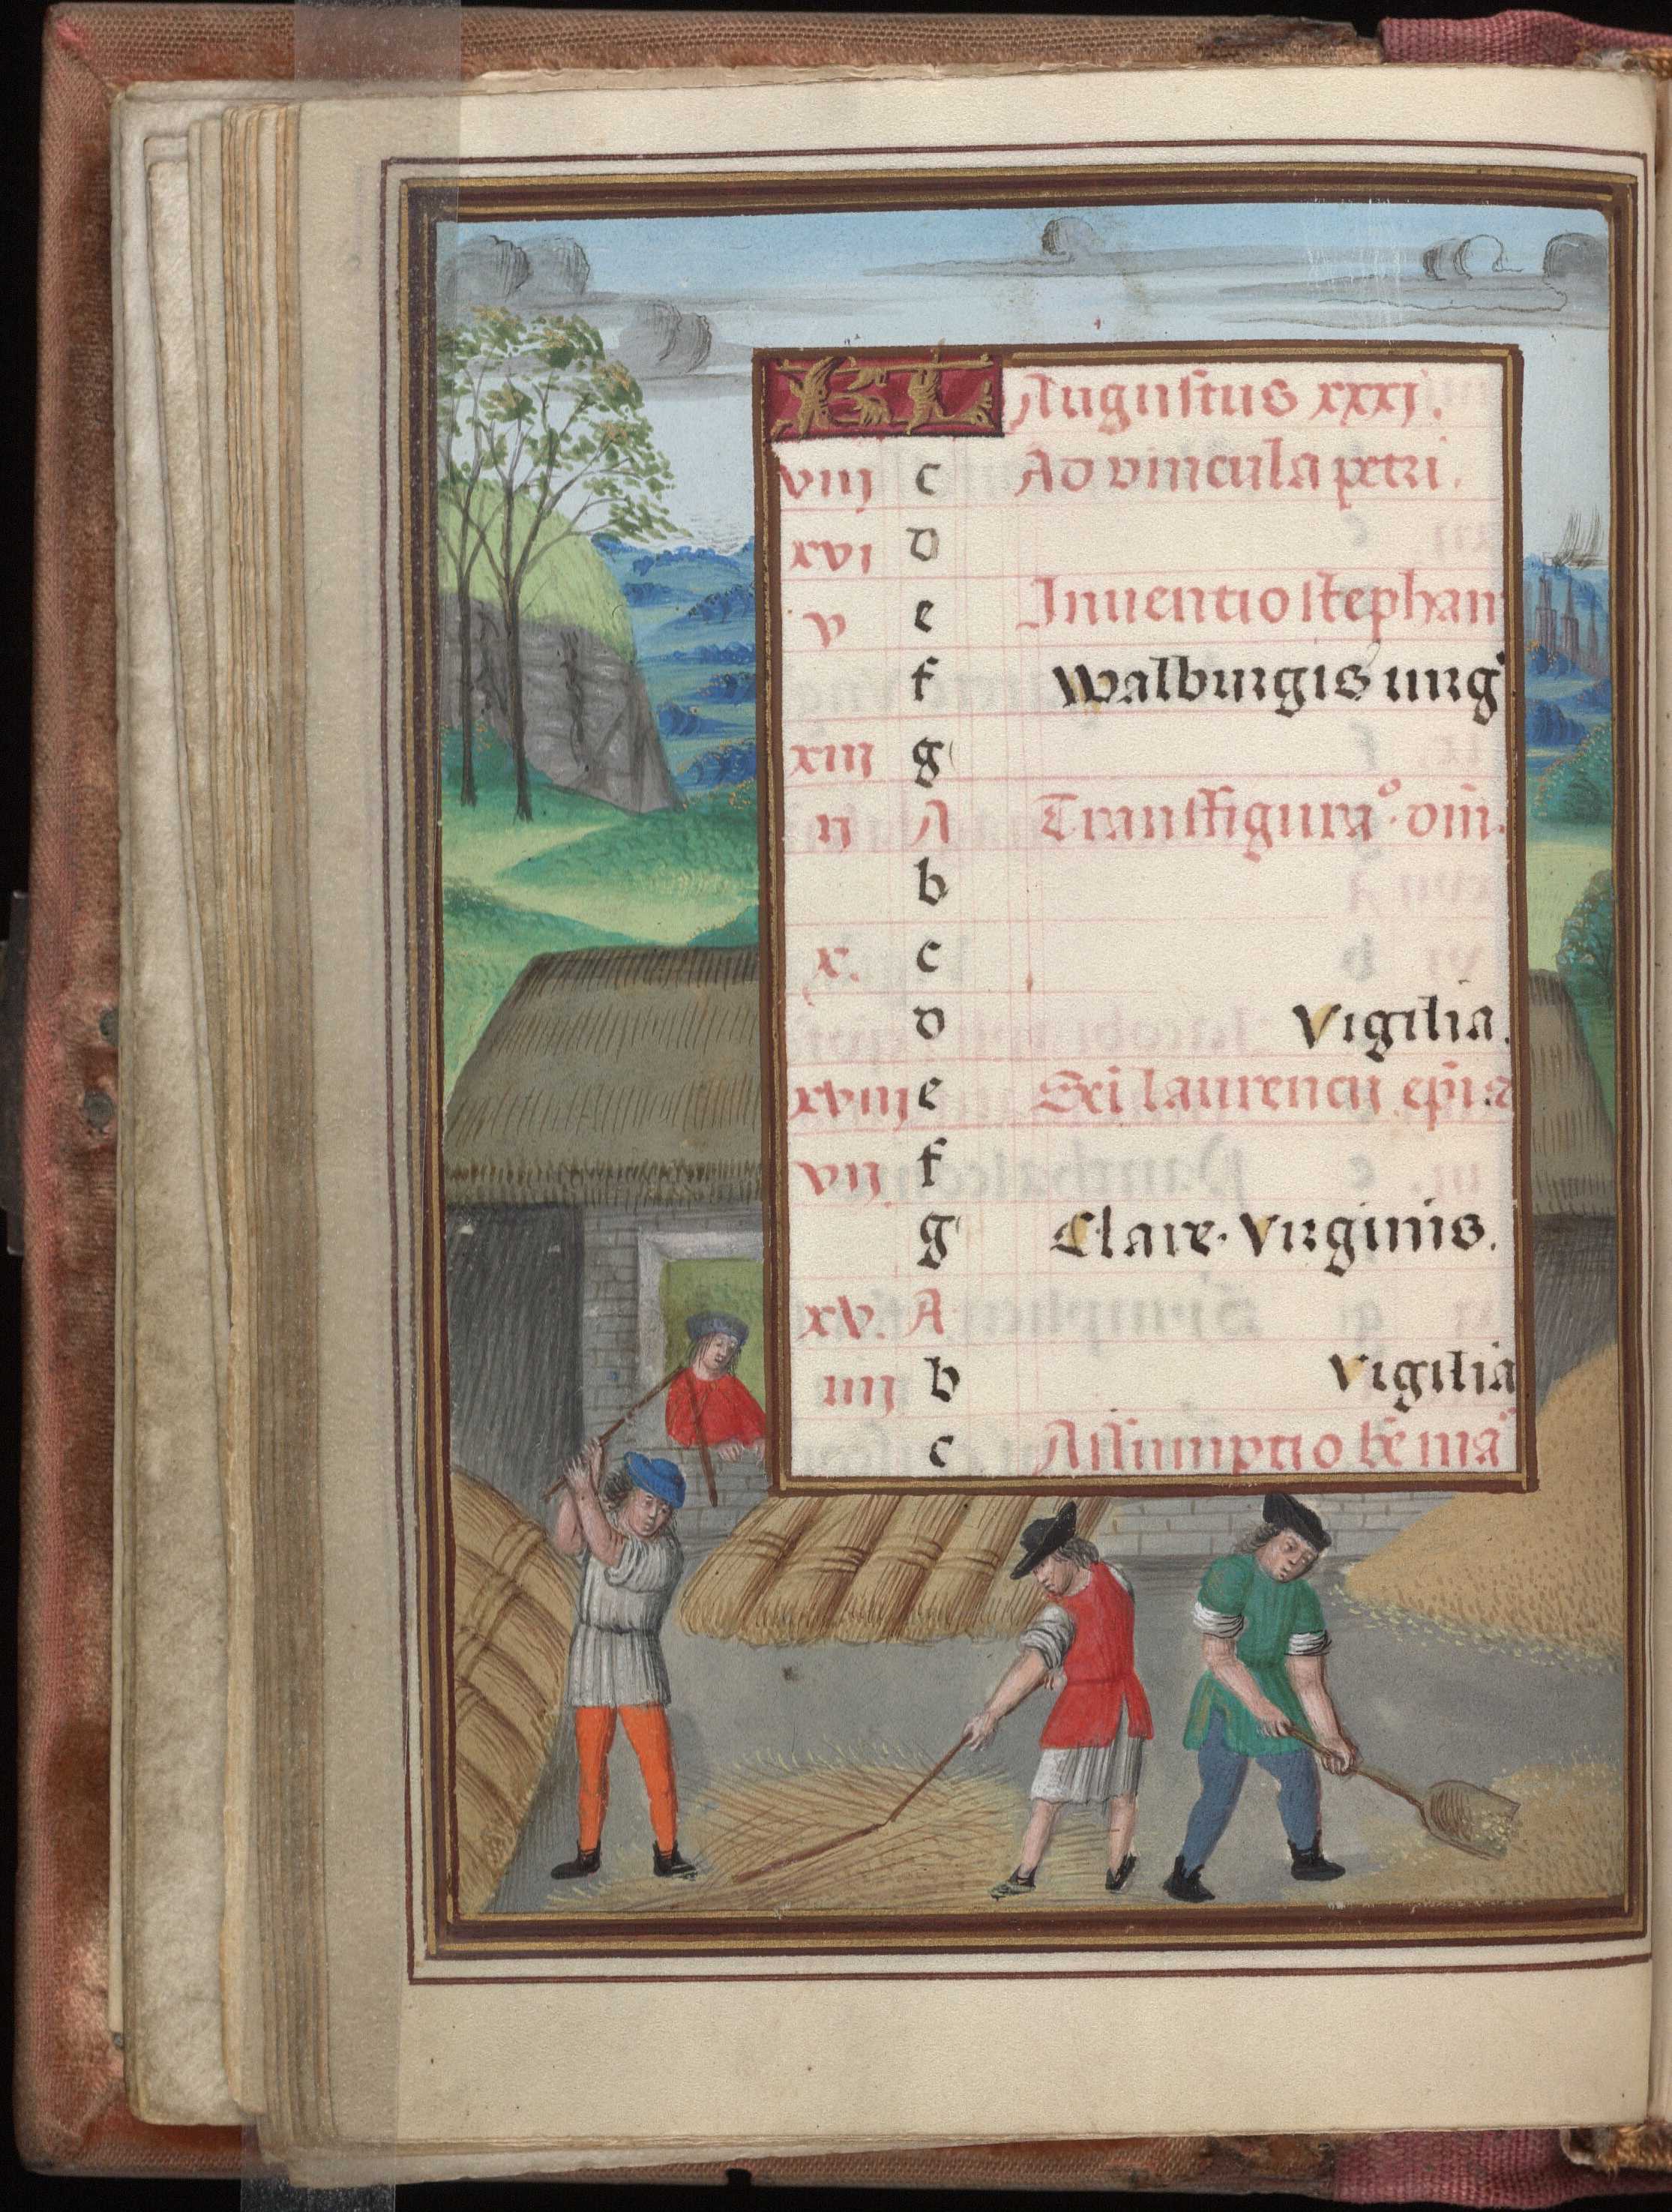 KL Augustus xxxj.
viij c Ad vincula petri.
xvj d
v e Inuentio stephani
f Walburgis uirg
xiij g
ij A Transfigura° dni.
b
x. c
d Vigilia.
xviij e Sci laurencij epis
vij f
g Clare. Virginis.
xv. A
iiij b Vigilia
c Assumptio be ma